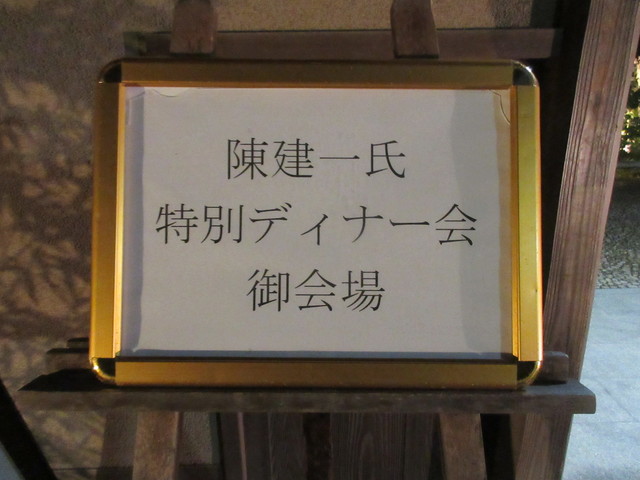 陳建一氏
特別ディナー会
御会場